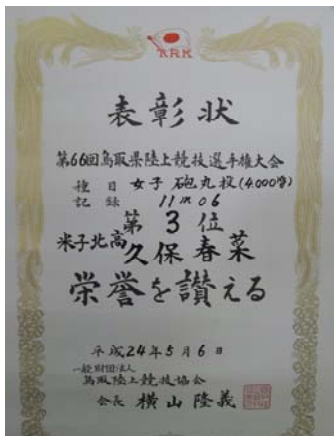 TRK
表彰状
第66回鳥取県陸上競技選手権大会
種目 女子 砲丸投(4.000㎏)
記録 11m06
第3位
米子北高 久保春菜
栄誉を讃える
平成24年5月6日
一般財団法人
鳥取陸上競技協会
会長 横山隆義